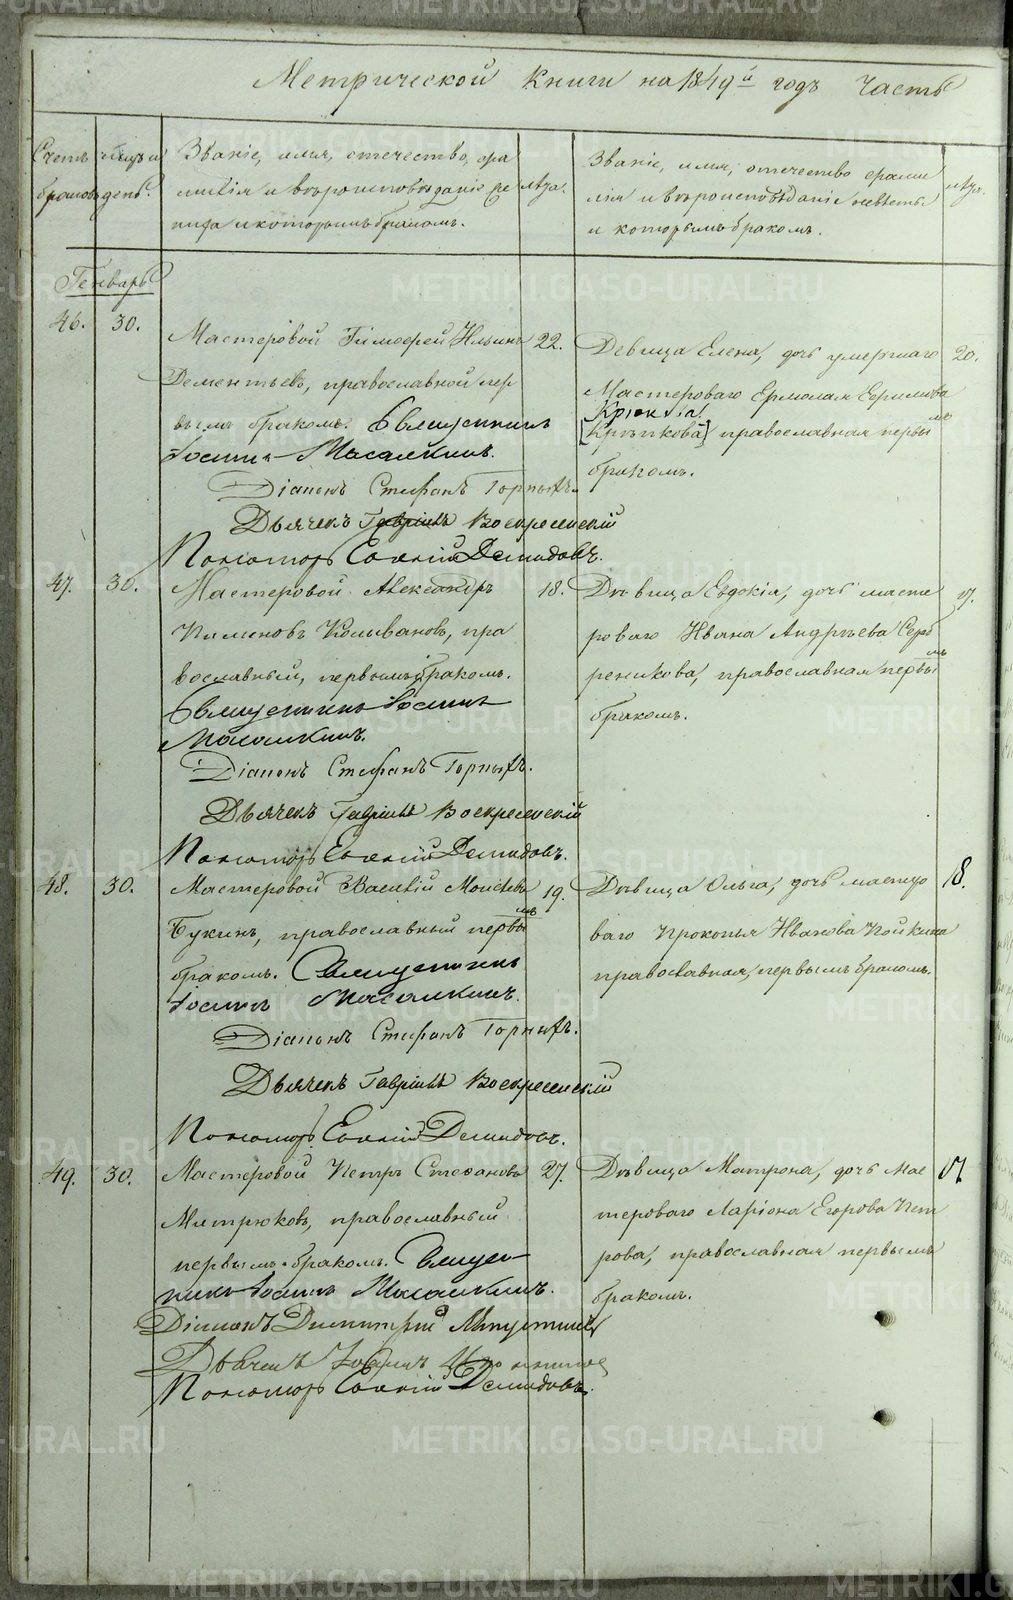 Метрической Книги на 1849й годъ Часть
Счетъ браковъ
мѣсяцъ и день.
Званіе, имя, отечество, фа
милія и вѣроисповѣданіе же
ниха и которымъ бракомъ.
лѣта.
Званіе, имя, отечество фами
лія и вѣроисповѣданіе невѣсты
и которымъ бракомъ.
лѣта.
Генварь
46. 30.
Мастеровой Тимоѳей Ильинъ 22.
Дементьевъ, православной пер
вымъ бракомъ. Священникъ
Іоаннъ Масалкинъ.
Діаконъ Стефанъ Горныхъ.
Дьячекъ Гавріилъ Воскресенскій
Пономарь Евгеній Демидовъ.
Девица Елена, дочь умершаго 20.
Мастероваго Ермолая Ефимова
Крюкова
[Крѣпкова] православная первы
мъ
бракомъ.
47. 30.
Мастеровой Александръ 18.
Пименовъ Колывановъ, пра
вославный, первымъ бракомъ.
Священникъ Іоаннъ
Масалкинъ.
Діаконъ Стефанъ Горныхъ.
Дьячекъ Гавріилъ Воскресенскій
Пономарь Евгеній Демидовъ.
Дѣвица Евдокія, дочь масте 17.
роваго Ивана Андреева Сереб
реникова, православная первы
мъ
бракомъ.
48. 30.
Мастеровой Василій Моисеевъ 19.
Букинъ, православный первы
мъ
бракомъ. Священникъ
Іоаннъ Масалкинъ.
Діаконъ Стефанъ Горныхъ.
Дьячекъ Гавріилъ Воскресенскій
Пономарь Евгеній Демидовъ.
Дѣвица Ольга, дочь мастеро 18.
ваго Прокопья Иванова Пойкина
православная, первымъ бракомъ.
49. 30.
Мастеровой Петръ Степановъ 27.
Митрюковъ, православный
первымъ бракомъ. Священ
никъ Іоаннъ Масалкинъ.
Діаконъ Димитрій
Дьячекъ Іоаннъ
Пономарь Евгеній Демидовъ.
Дѣвица Матрона, дочь мас 17
тероваго Ларіона Егорова Пет
рова, православная первымъ
бракомъ.
METRIKI.GASO-URAL.RU